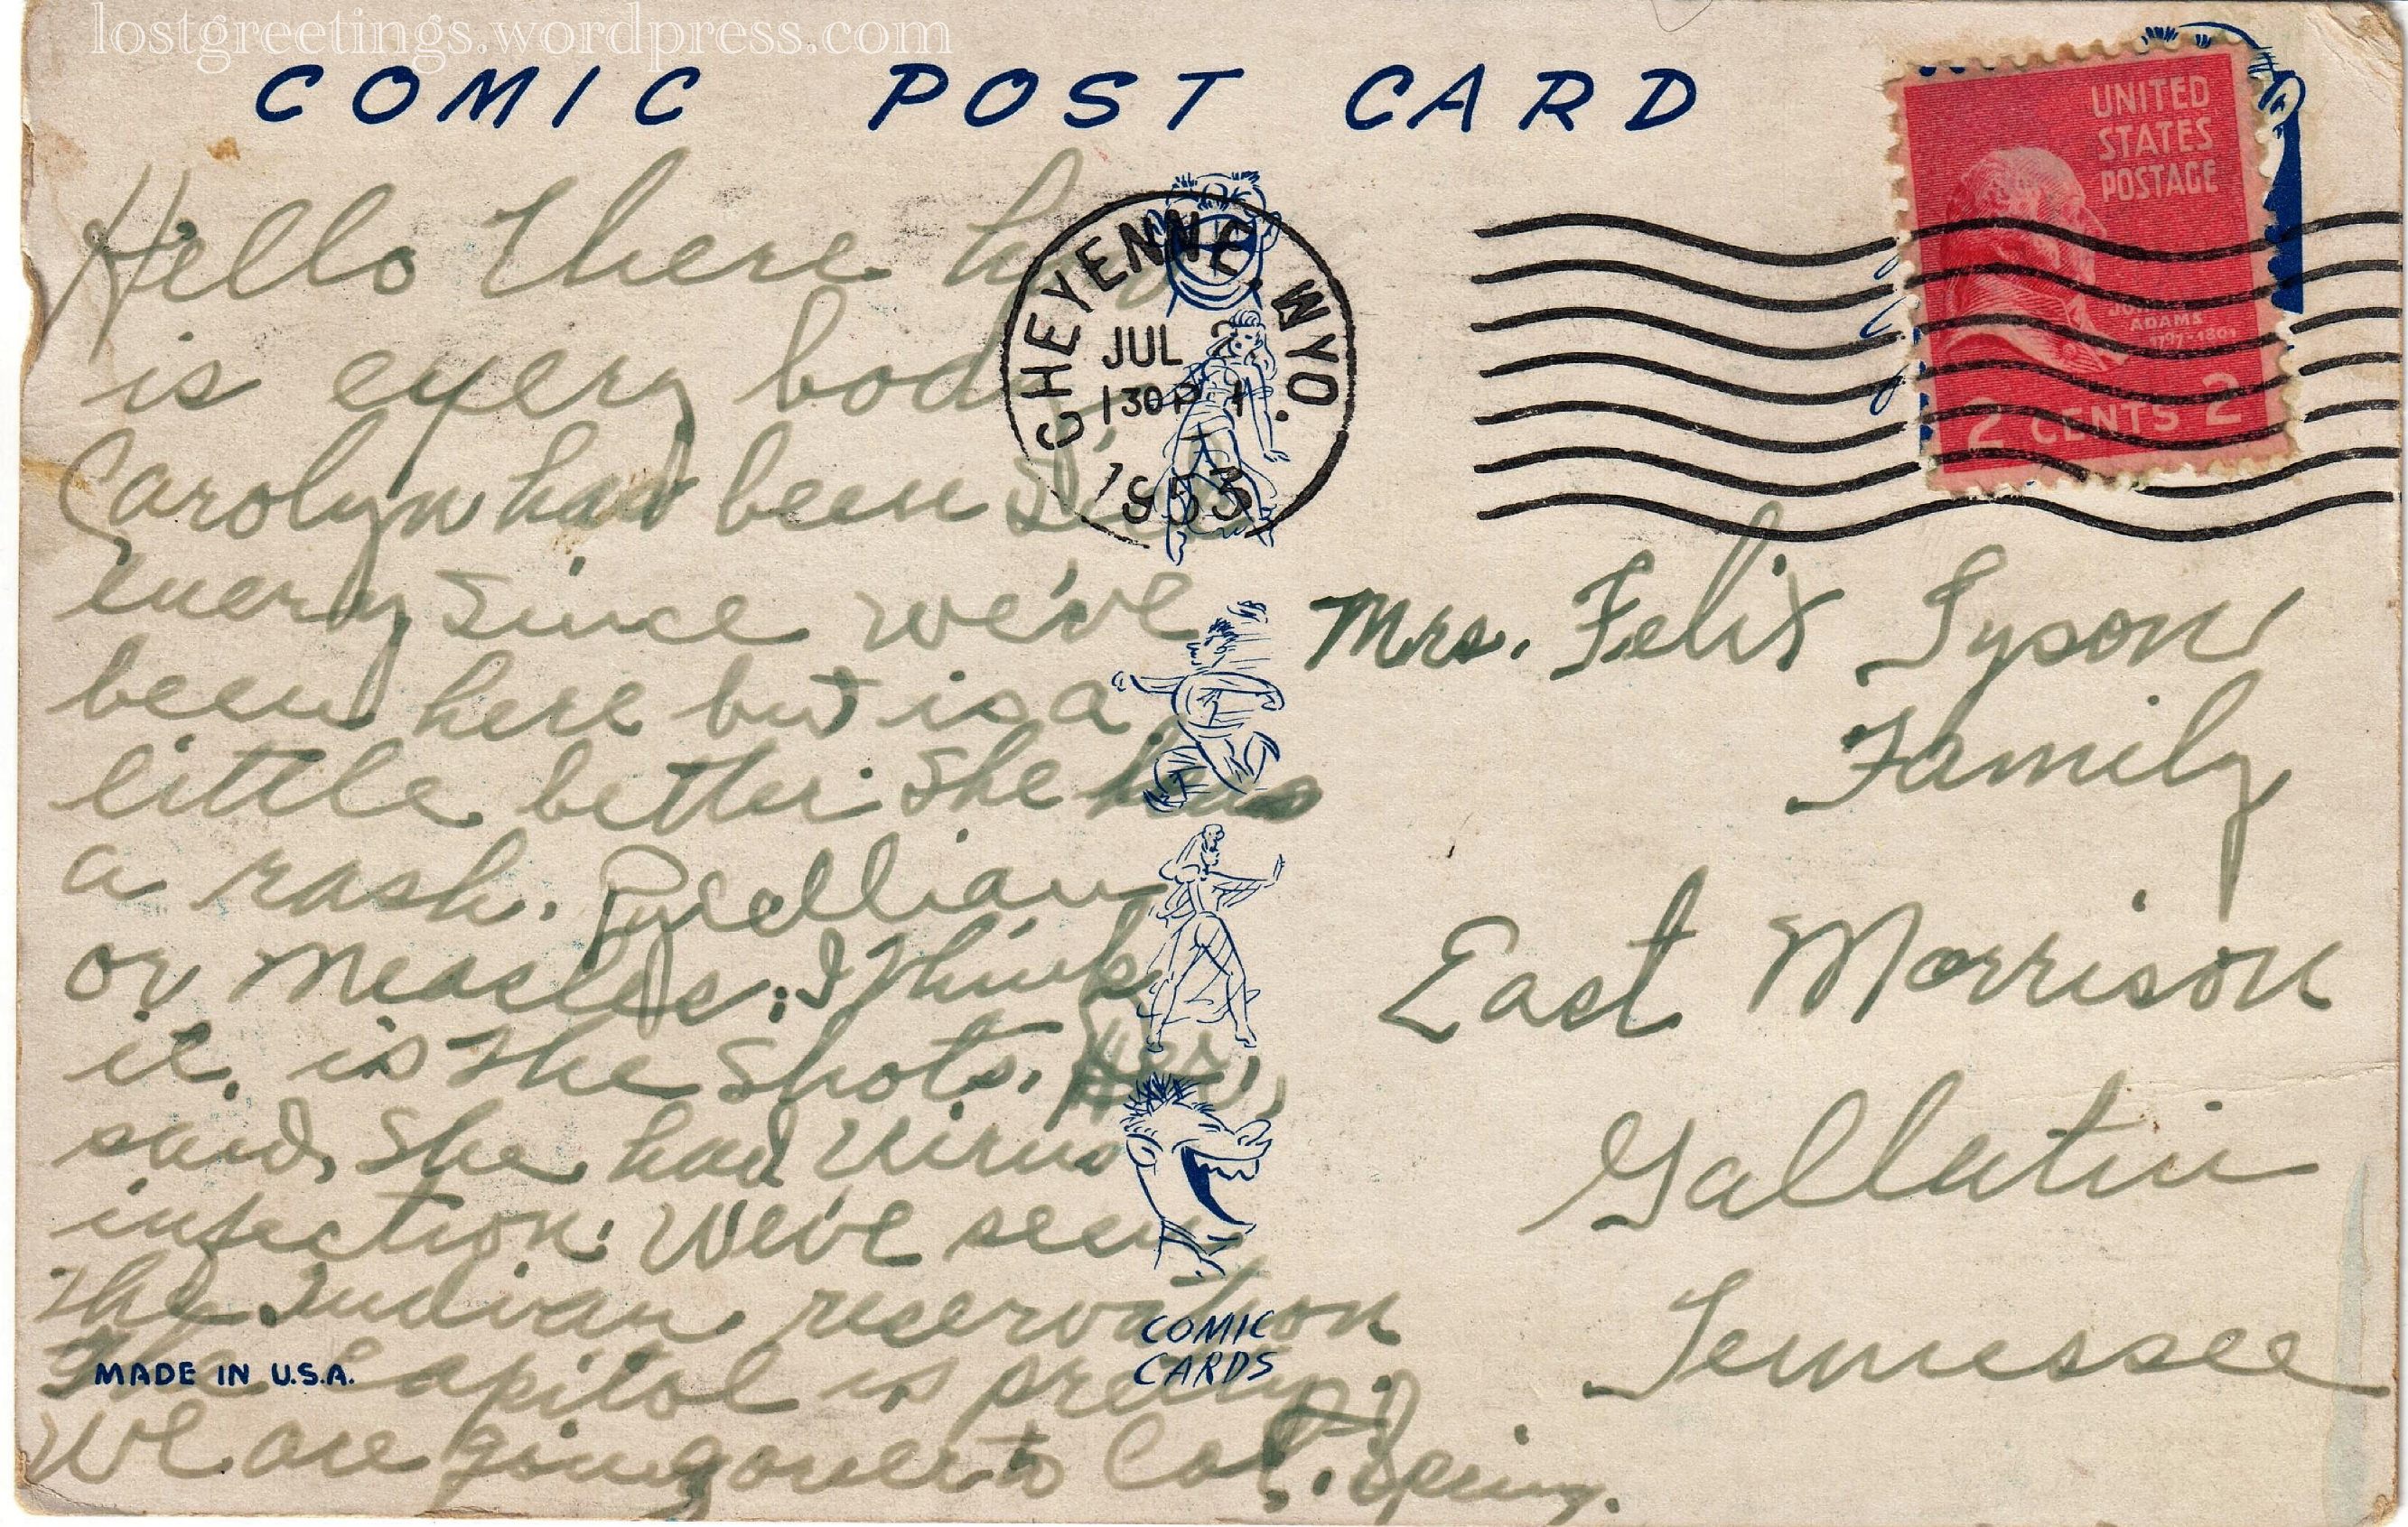 lostgreetings.wordpress.com
COMIC POST CARD
UNITED
STATES
POSTAGE
JOHN
ADAMS
1797-1801
2 CENTS 2
CHEYENNE, WYO.
JUL 2
130 P
1953
Hello there how
is every body
Carolyn has been sick
every since we've
been here but is a
little better. She has
a rash.
or measles; I think
it is the shots.
said she had virus
infection. We've seen
the Indian reservation
The Capitol is pretty.
We are going over to Col. Spring.
Mrs. Felix Tyson
Family
East Morrison
Gallatin
Tennessee
COMIC
CARDS
MADE IN U.S.A.